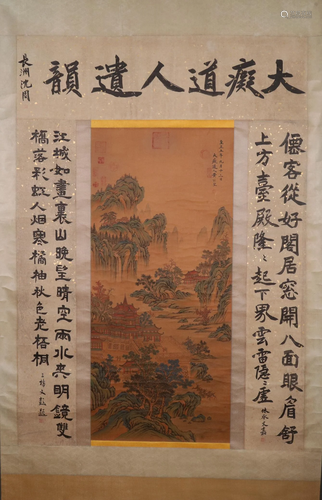 大癡道人遺韻
長洲沈周
僊客從好閣居窓開八面眼眉舒
上方臺殿隆〻起下界雲雷隱〻虛
文嘉
江城如畫裏山晚望晴空雨水夾明鏡雙
橋落彩虹人烟寒橘柚秋色老梧桐
三橋文彭題